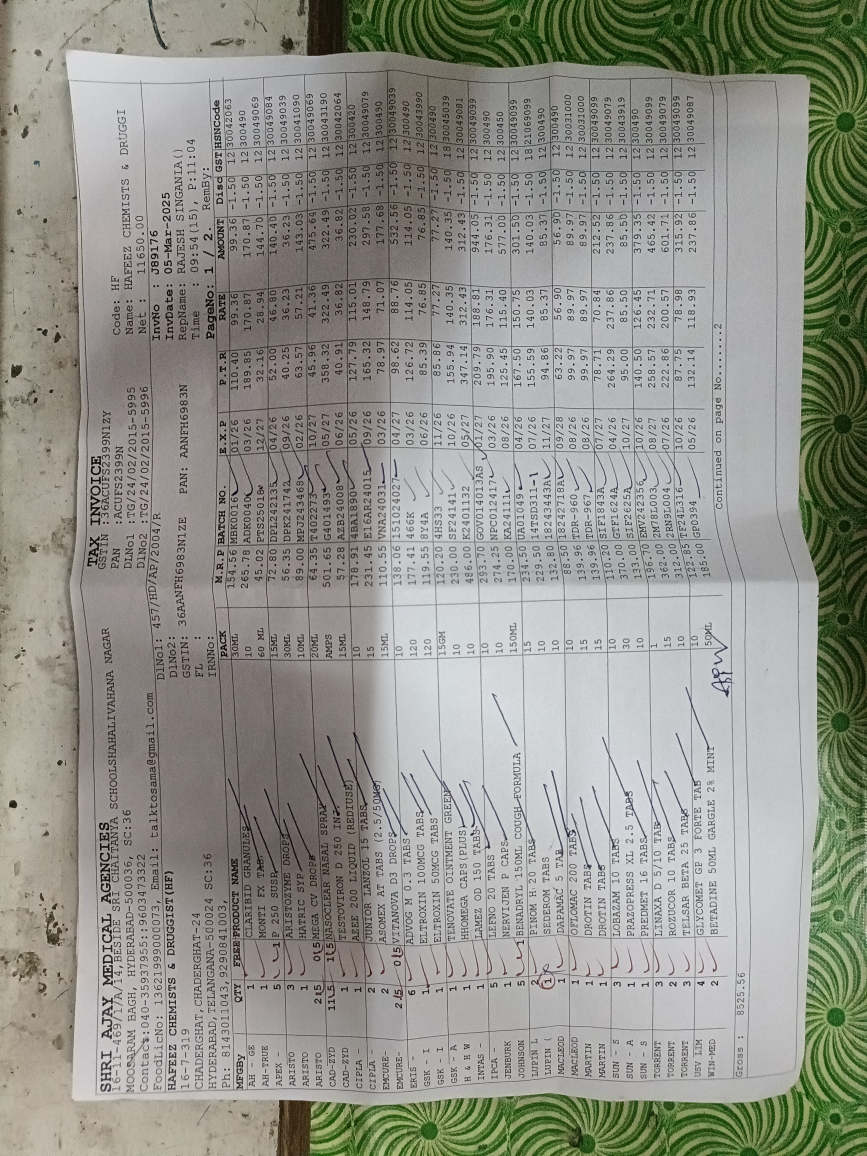 SHRI AJAY MEDICAL AGENCIES
16-11-469/17A/14,BESIDE SRI CHAITANYA SCHOOLSHAHALIVAHANA NAGAR
MOOSARAM BAGH, HYDERABAD-500036, SC:36
Contact:040-35937955::9603473322
FoodLicNo: 13621999000073, Email: talktosama@gmail.com
HAFEEZ CHEMISTS & DRUGGIST(HF)
16-7-319
CHADERGHAT,CHADERGHAT-24
HYDERABAD,TELANGANA-500024 SC:36
Ph: 8143011043,9290841003,
TAX INVOICE
GSTIN :36ACUFS2399N1ZY
PAN :ACUFS2399N
DlNo1 :TG/24/02/2015-5995
DlNo2 :TG/24/02/2015-5996
DlNo1: 457/HD/AP/2004
DlNo2:
GSTIN: 36AANFH6983N1ZE PAN: AANFH6983N
FL :
IRNNo:
Code: HF
Name: HAFEEZ CHEMISTS & DRUGGI
Net : 11650.00
InvNo : J89176
InvDate: 05-Mar-2025
RepName: RAJESH SINGANIA()
Time : 09:54(15), P:11:04
PageNo: 1 / 2. RemBy:
MFGBY QTY FREE PRODUCT NAME PACK M.R.P BATCH NO. E.X.P P.T.R RATE AMOUNT Disc GST HSNCode
AH - GE 1 CLARIBID GRANULES 30ML 154.56 MBK0016 01/26 110.40 99.36 99.36 -1.50 12 30042063
AH-TRUE 1 MONTI FX TAB 10 265.78 ADK0040 03/26 189.85 170.87 170.87 -1.50 12 300490
APEX - 5 1 P 250 SUSP 60 ML 45.02 PTS25018 12/27 32.16 28.94 144.70 -1.50 12 30049069
ARISTO 3 ARISTOZYME DROPS 15ML 72.80 DPL242135 04/26 52.00 46.80 140.40 -1.50 12 30049084
ARISTO 1 HATRIC SYP 30ML 56.35 DPK241742 09/26 40.25 36.23 36.23 -1.50 12 30049039
ARISTO MEGA CV DROPS 10ML 89.00 MFJ243468 02/26 63.57 57.21 143.03 -1.50 12 30041090
CAD-ZYD NASOCLEAR NASAL SPRAY 20ML 64.35 T402273 10/27 45.96 41.36 475.64 -1.50 12 30049069
CAD-ZYD 1 TESTOVIRON D 250 INJ AMPS 501.65 G401493 05/27 358.32 322.49 322.49 -1.50 12 30043190
CIPLA - 1 AZEE 200 LIQUID (REDIUSE) 15ML 57.28 A2B24008 06/26 40.91 36.82 36.82 -1.50 12 30042064
CIPLA - 2 JUNIOR LANZOL 15 TABS 10 178.91 4BA1890 05/26 127.79 115.01 230.02 -1.50 12 300420
EMCURE- 2 ASOMEX AT TABS (2.5/50MG) 15 231.45 E16AR24015 09/26 165.32 148.79 297.58 -1.50 12 30049079
EMCURE- VITANOVA D3 DROPS 15ML 110.55 VNA24031 03/26 78.97 71.07 177.68 -1.50 12 300490
ERIS - 6 ADVOG M 0.3 TABS 10 138.06 151024027 04/27 98.62 88.76 532.56 -1.50 12 30049039
GSK - I 1 ELTROXIN 100MCG TABS 120 177.41 466K 03/26 126.72 114.05 114.05 -1.50 12 300490
GSK - I 1 ELTROXIN 50MCG TABS 120 119.55 8Y4A 06/26 85.39 76.85 76.85 -1.50 12 30043990
GSK - A 1 TENOVATE OINTMENT GREEN 15GM 120.20 4HS33 11/26 85.86 77.27 77.27 -1.50 12 300490
H & H W 1 HHOMEGA CAPS(PLUS) 10 230.00 SF24141 10/26 155.94 140.35 140.35 -1.50 18 30045039
INTAS - 1 LAMEZ OD 150 TABS 10 486.00 K2401132 05/27 347.14 312.43 312.43 -1.50 12 30049081
IPCA - 5 LEFNO 20 TABS 10 293.70 GOV014013AS 01/27 209.79 188.81 944.05 -1.50 12 30049099
JENBURK 1 NERVIJEN P CAPS 10 274.25 NPC012417 03/26 195.90 176.31 176.31 -1.50 12 300490
JOHNSON 5 1 BENADRYL 150ML COUGH FORMULA 150ML 170.00 KA24111 08/26 125.45 115.40 577.00 -1.50 12 300450
LUPIN L 2 PINOM H 20 TABS 15 234.50 UA01049 04/26 167.50 150.75 301.50 -1.50 12 30049099
LUPIN 1 SEDEROM TABS 10 229.50 14TSD311-1 07/26 155.59 140.03 140.03 -1.50 18 21069099
MACLEOD 1 DAPAMAC 5 TAB 10 132.80 18243443A 11/27 94.86 85.37 85.37 -1.50 12 300490
MACLEOD 1 OFLOMAC 200 TABS 10 88.50 18242718A 09/28 63.22 56.90 56.90 -1.50 12 300490
MARTIN 1 DROTIN TABS 15 139.96 TDR-960 08/26 99.97 89.97 89.97 -1.50 12 30031000
MARTIN 1 DROTIN TABS 15 139.96 TDR-967 08/26 99.97 89.97 89.97 -1.50 12 30031000
SUN - S 3 LOBAZAM 10 TABS 10 110.20 SIF1843A 07/27 78.71 70.84 212.52 -1.50 12 30049099
SUN - A 1 PRAZOPRESS XL 2.5 TABS 30 370.00 GPF1624A 04/27 264.29 237.86 237.86 -1.50 12 30049079
SUN - S 1 PREDMET 16 TABS 10 133.00 SIF2625A 10/27 95.00 85.50 85.50 -1.50 12 30043919
TORRENT 3 LINAXA D 5/10 TAB 1 196.70 EMV242356 10/27 140.50 126.45 379.35 -1.50 12 300490
TORRENT 2 ROZUCOR 10 TABS 15 362.00 2M78L003 08/27 258.57 232.71 465.42 -1.50 12 30049099
TORRENT 3 TELSAR BETA 25 TABS 10 312.00 2RN9L004 07/26 222.86 200.57 601.71 -1.50 12 30049079
USV LIM 4 GLYCOMET GP 3 FORTE TAB 10 122.85 TPF24L316 10/26 87.75 78.98 315.92 -1.50 12 30049099
WIN-MED 2 BETADINE 50ML GARGLE 2% MINT 50ML 185.00 GP0394 05/26 132.14 118.93 237.86 -1.50 12 30049087
Continued on page No.......2
Gross : 8525.56